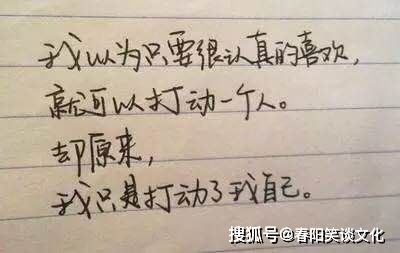 我以为只要很认真的喜欢，
就可以打动一个人。
却原来，
我只是打动了我自己。
搜狐号@春阳笑谈文化